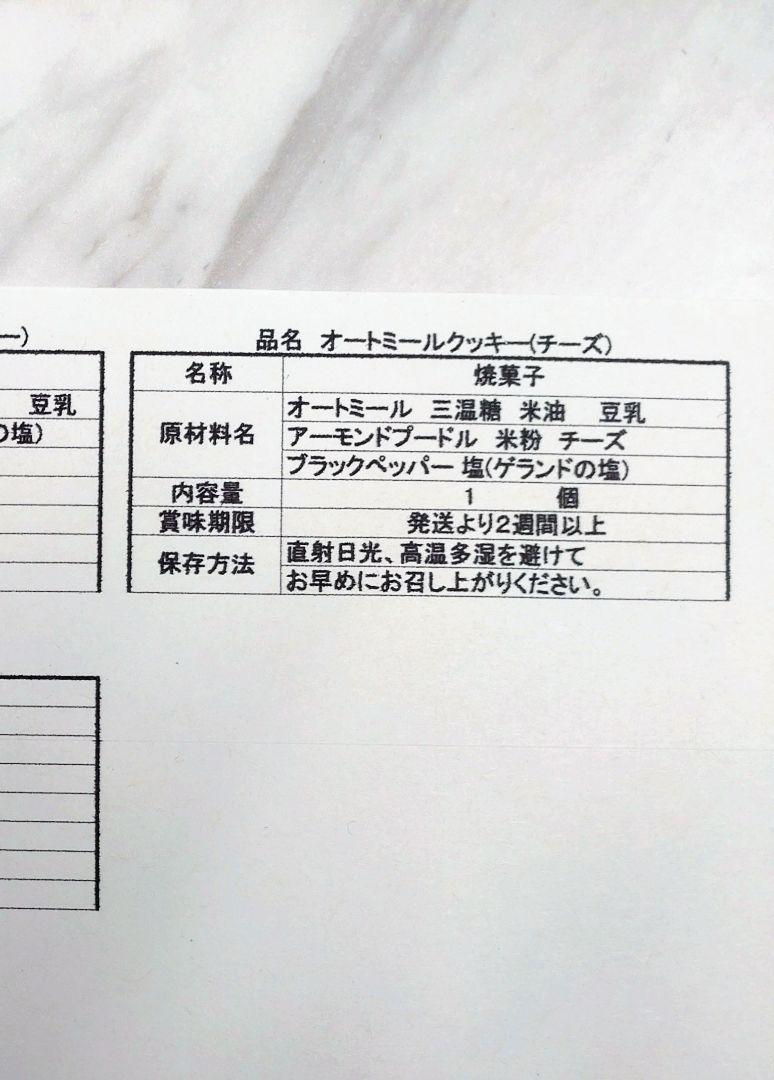 ー)
豆乳
の塩)
品名 オートミールクッキー(チーズ)
名称 焼菓子
原材料名
オートミール 三温糖 米油 豆乳
アーモンドプードル 米粉 チーズ
ブラックペッパー 塩(ゲランドの塩)
内容量 1 個
賞味期限 発送より2週間以上
保存方法
直射日光、高温多湿を避けて
お早めにお召し上がりください。